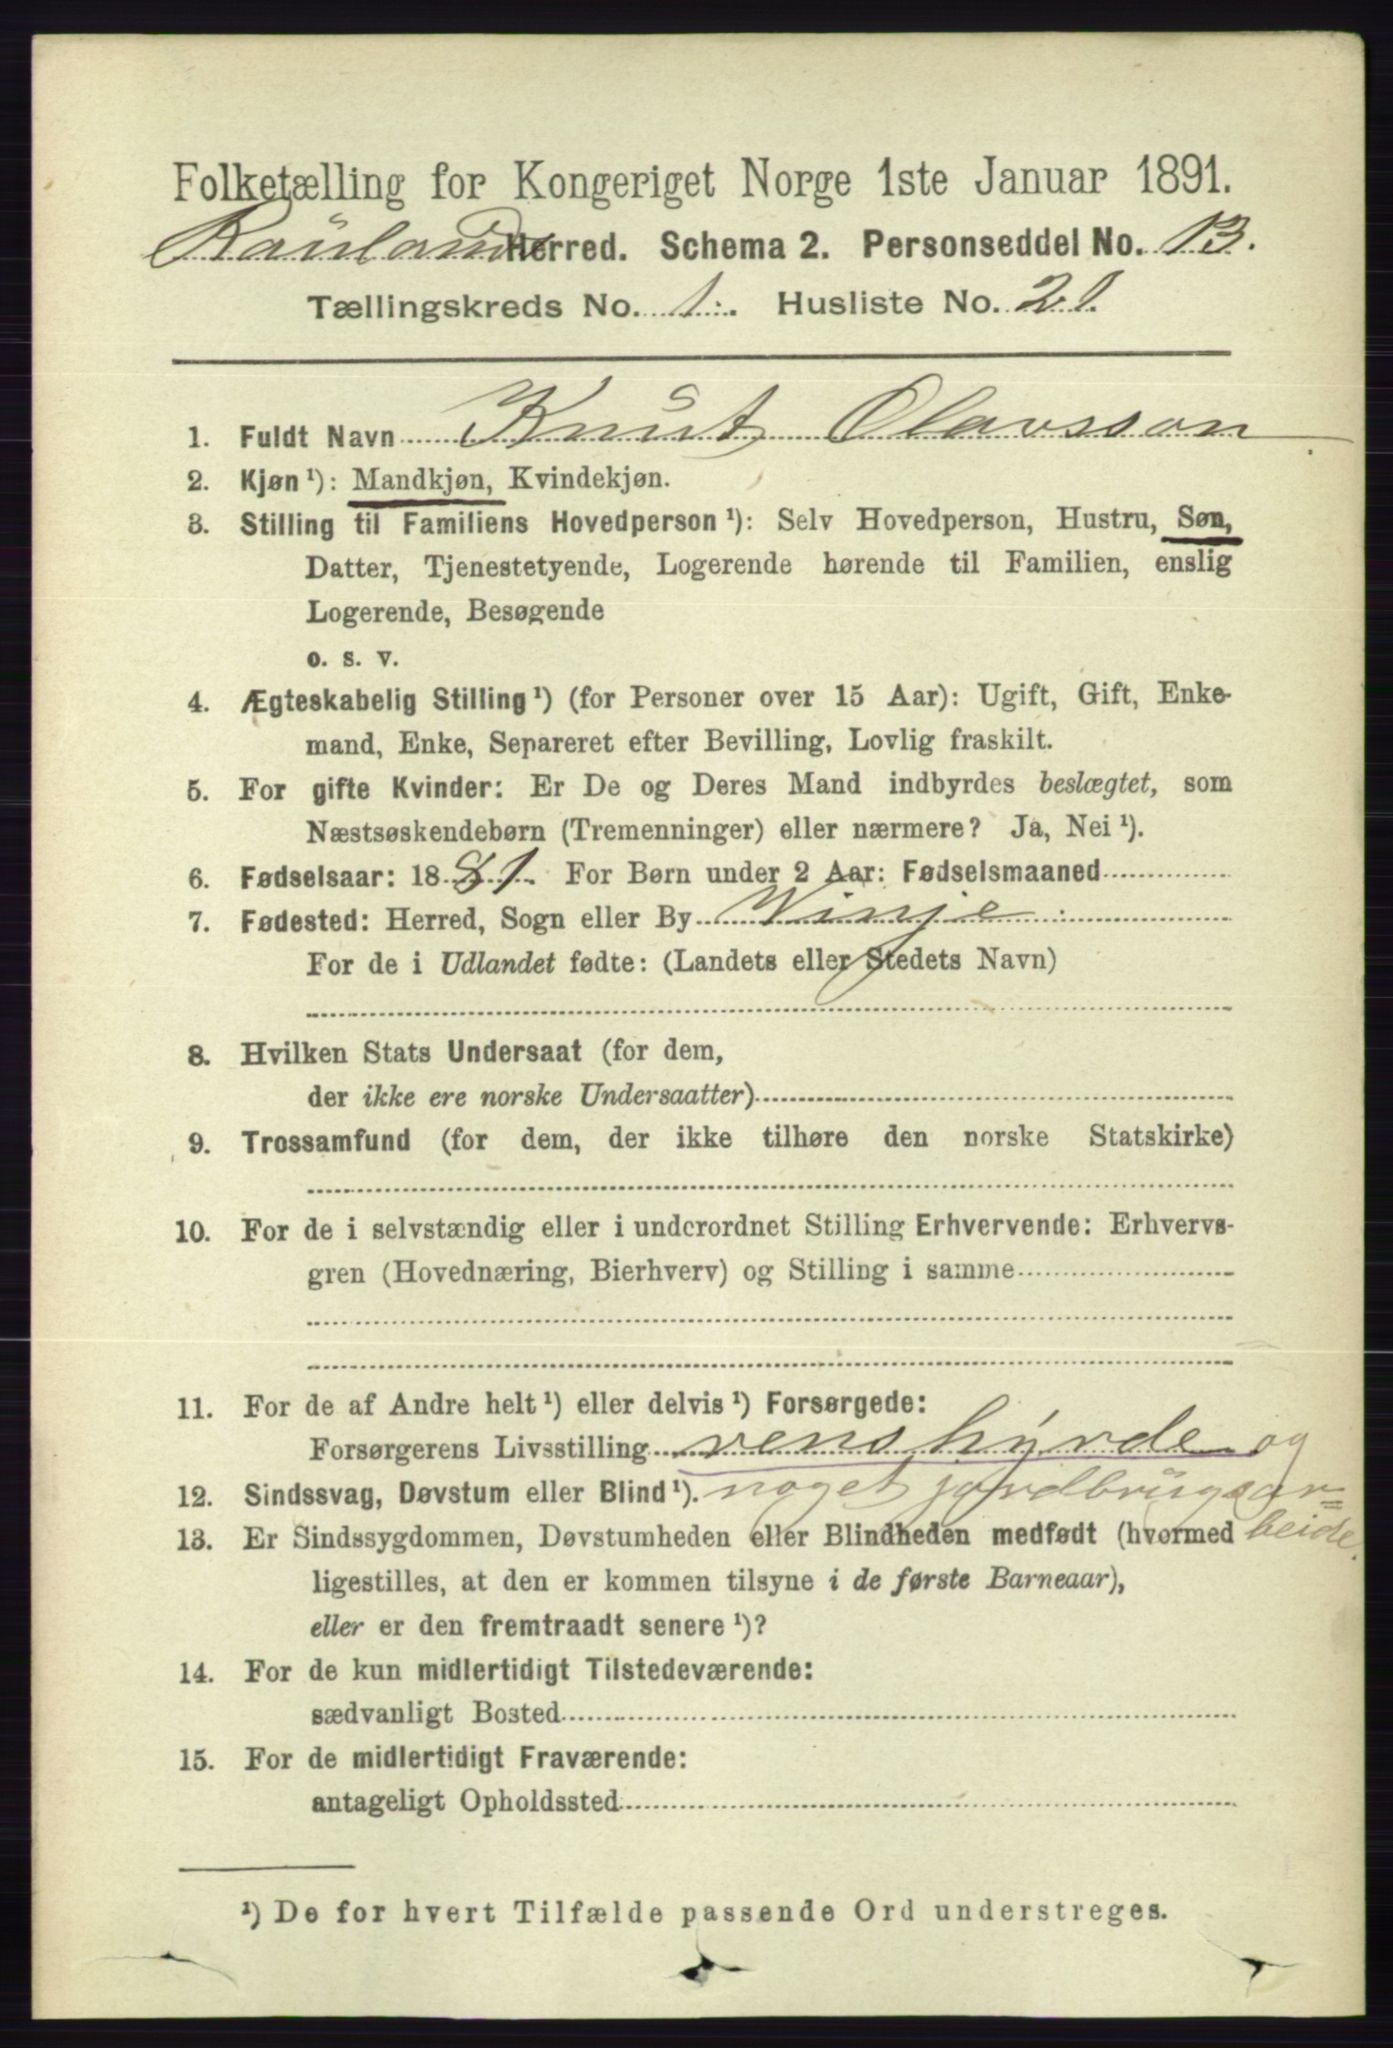 Folketælling for Kongeriget Norge 1ste Januar 1891.
Rauland Herred. Schema 2. Personseddel No. 13.
Tællingskreds No. 1. Husliste No. 21.
1. Fuldt Navn Knut Olavsson
2. Kjøn ¹): Mandkjøn, Kvindekjøn.
3. Stilling til Familiens Hovedperson ¹): Selv Hovedperson, Hustru, Søn,
Datter, Tjenestetyende, Logerende hørende til Familien, enslig
Logerende, Besøgende
o. s. v.
4. Ægteskabelig Stilling ¹) (for Personer over 15 Aar): Ugift, Gift, Enke-
mand, Enke, Separeret efter Bevilling, Lovlig fraskilt.
5. For gifte Kvinder: Er De og Deres Mand indbyrdes beslægtet, som
Næstsøskendebørn (Tremenninger) eller nærmere? Ja, Nei ¹).
6. Fødselsaar: 1881. For Børn under 2 Aar: Fødselsmaaned
7. Fødested: Herred, Sogn eller By Vinje
For de i Udlandet fødte: (Landets eller Stedets Navn)
8. Hvilken Stats Undersaat (for dem,
der ikke ere norske Undersaatter)
9. Trossamfund (for dem, der ikke tilhøre den norske Statskirke)
10. For de i selvstændig eller i underordnet Stilling Erhvervende: Erhvervs-
gren (Hovednæring, Bierhverv) og Stilling i samme
11. For de af Andre helt ¹) eller delvis ¹) Forsørgede:
Forsørgerens Livsstilling renshyrde og
12. Sindssvag, Døvstum eller Blind ¹). noget jordbrugsar=
13. Er Sindssygdommen, Døvstumheden eller Blindheden medfødt (hvormed beide.
ligestilles, at den er kommen tilsyne i de første Barneaar),
eller er den fremtraadt senere ¹)?
14. For de kun midlertidigt Tilstedeværende:
sædvanligt Bosted
15. For de midlertidigt Fraværende:
antageligt Opholdssted
¹) De for hvert Tilfælde passende Ord understreges.